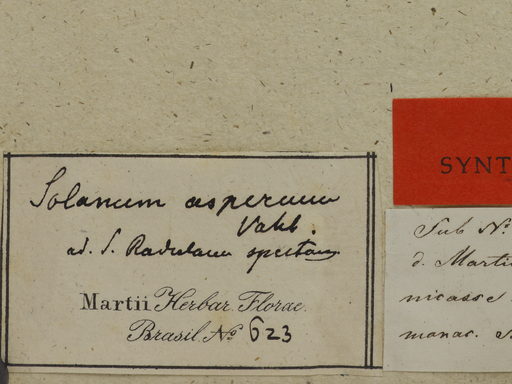 Solanum asperum
Vahl.
ad. S. Radulam spectans
Martii Herbar. Florae
Brasil. No 623
SYNT
Sub No.
d. Marti
nicasse
monac.